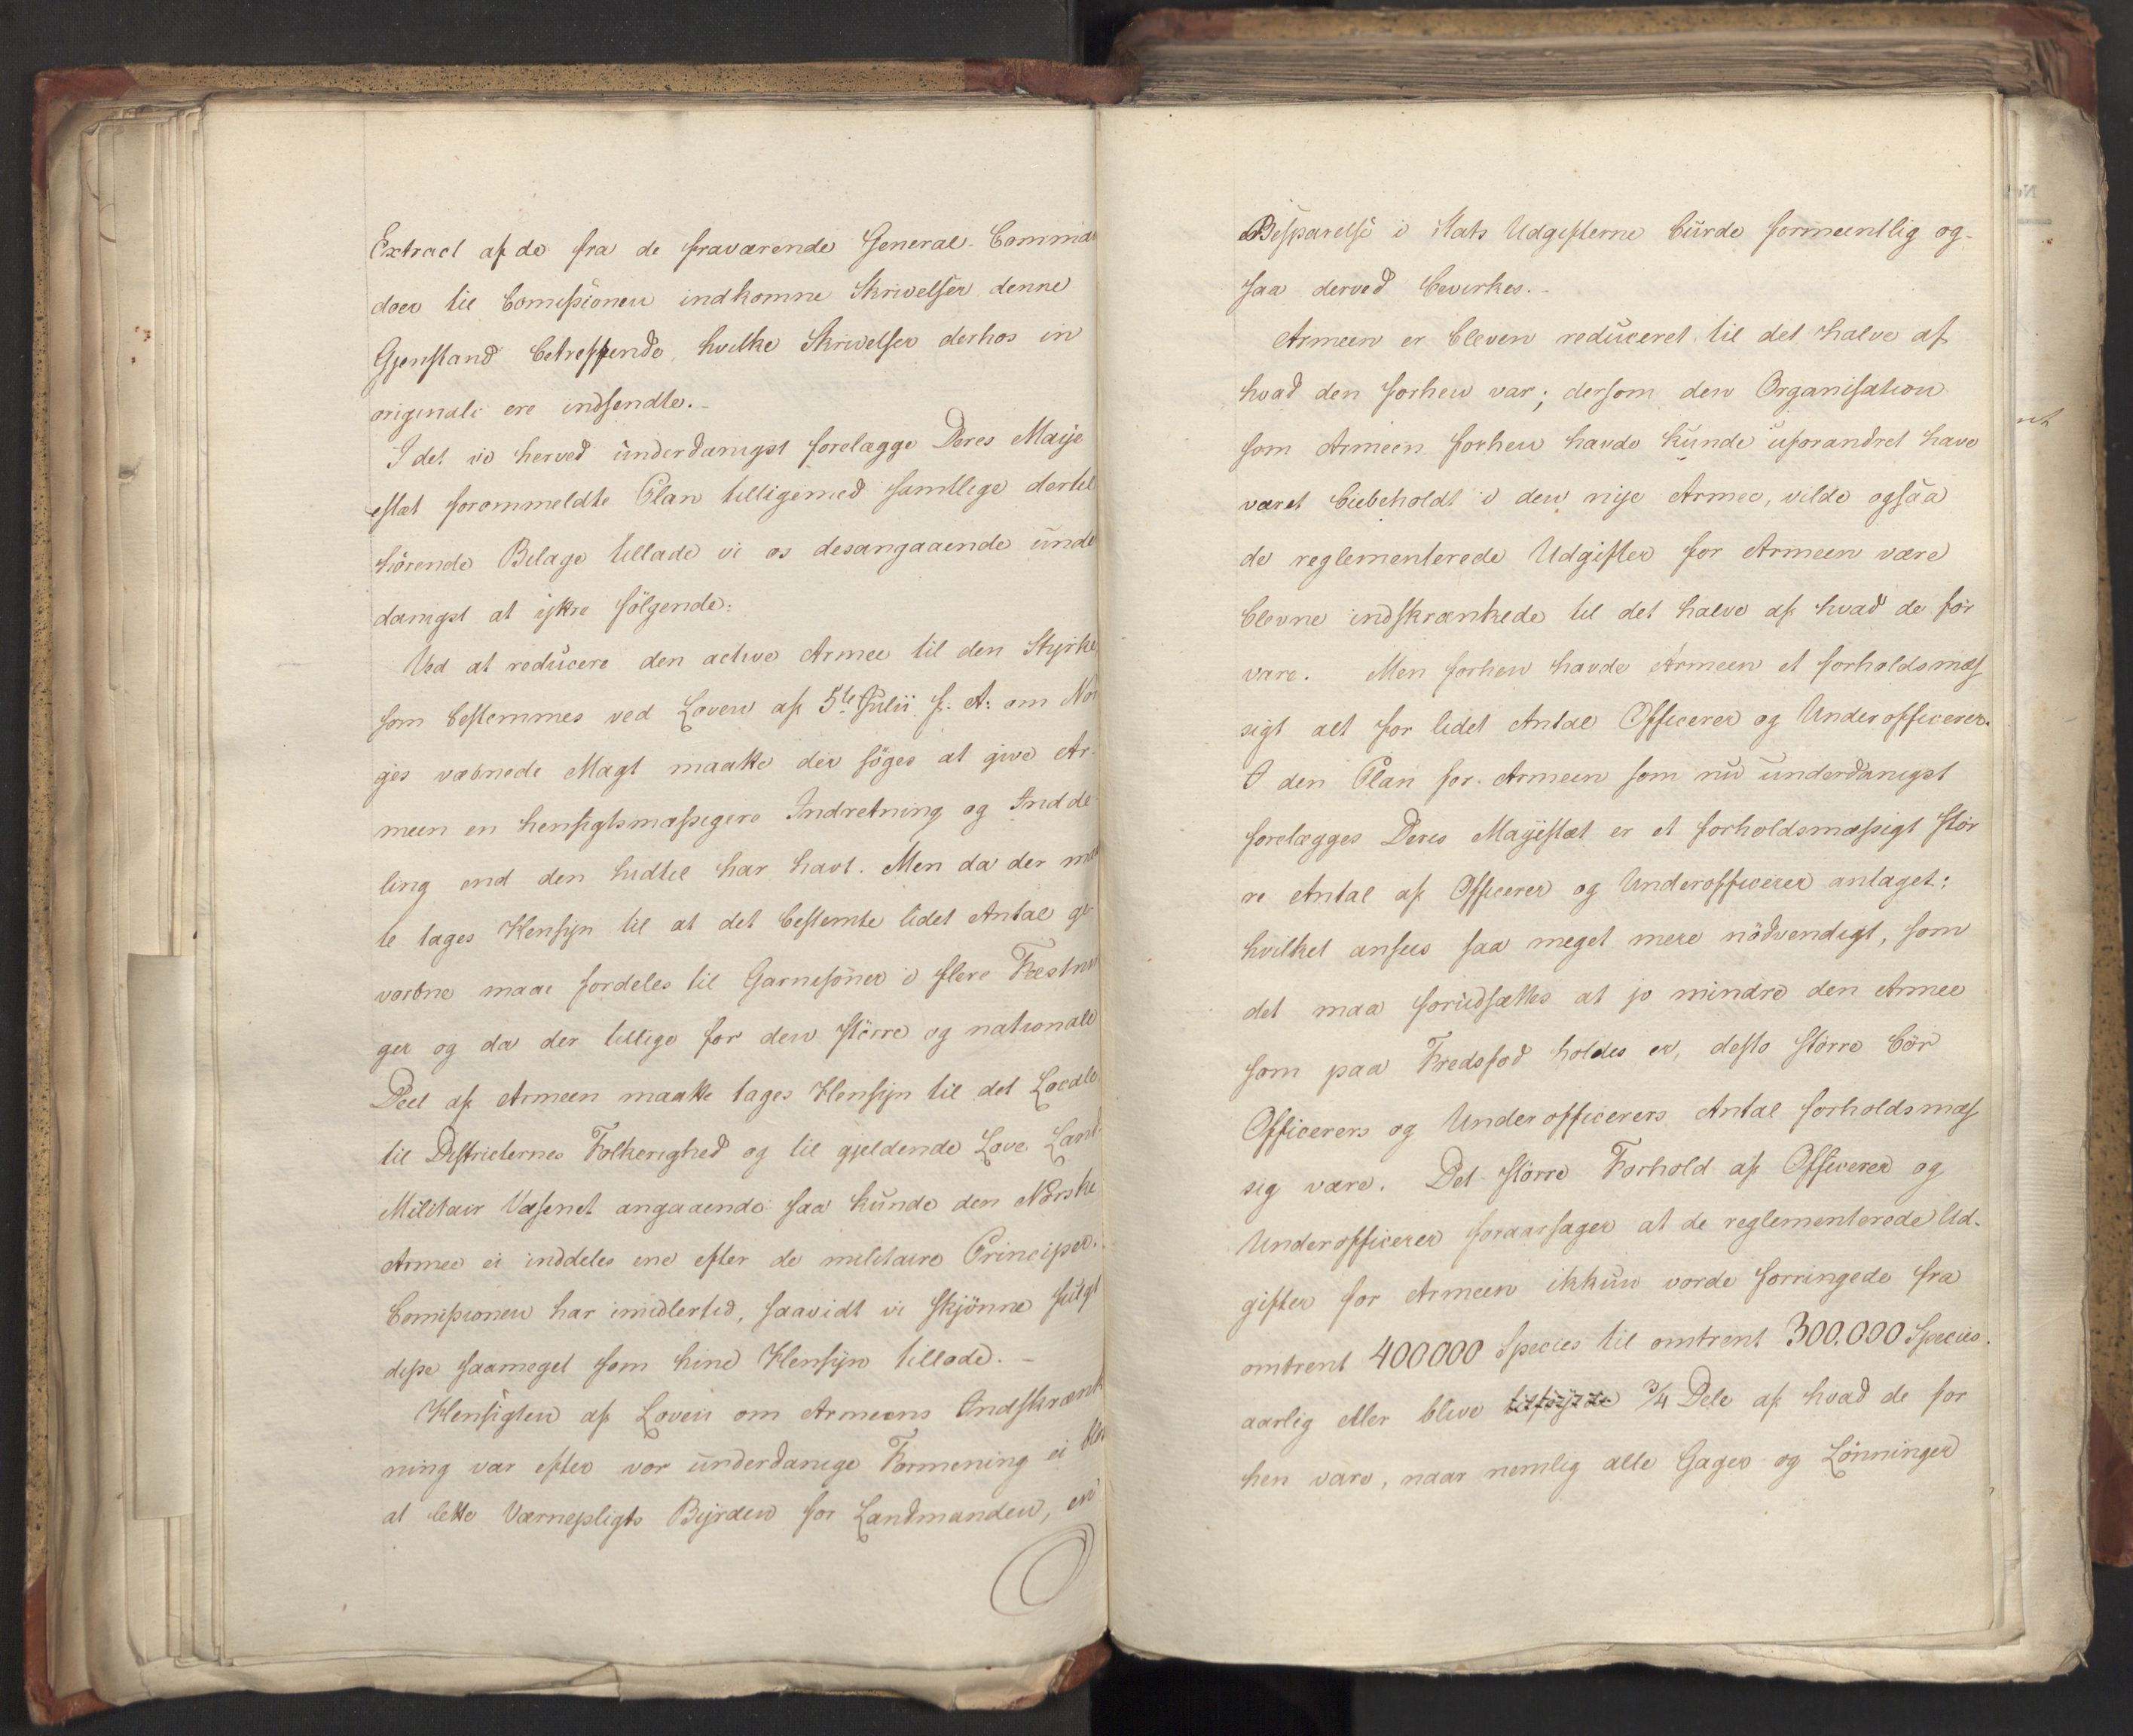 Extract af de fra de fraværende General-Comman
doer til Comissionen indkomne Skrivelser denne
Gjenstand betreffende, hvilke Skrivelser derhos in
originali ere indsendte.-
I det vi herved underdanigst forelægge Deres Maje
stæt forommeldte Plan tilligemed samtlige dertil
hörende Bilage tillade vi os desangaaende unde
danigst at ijttre fölgende:
Ved at reducere den active Armee til den Styrke
som bestemmes ved Loven af 5te Julii f: A: om Nor
ges væbnede Magt maatte der söges at give Ar-
meen en hensigtsmæssigere Indretning og Indde
ling end den hidtil har havt. Men da der maa
te tages Hensijn til at det bestemte lidet Antal ge
vorbne maae fordeles til Garnisoner i flere Fæstnin
ger og da der tillige for den större og nationale
Deel af Armeen maatte tages Hensijn til det Locale
til Districternes Folkerighed og til gjeldende Love Land
Militair Væsenet angaaende saa kunde den Norske
Armee ei inddeles ene efter de militaire Principer.
Comissionen har imidlertid, saavidt vi skjönne fulgt
disse saameget som hine Hensijn tillode.-
Hensigten af Loven om Armeens Indskrænk
ning var efter vor underdanige Formening ei blot
at lette Værnepligts Byrden for Landmanden, en
Besparelse i Stats Udgifterne burde formeentlig og-
saa derved bevirkes.-
Armeen er bleven reduceret til det halve af
hvad den forhen var; dersom den Organisation
som Armeen forhen havde kunde uforandret have
været biebeholdt i den nije Armee, vilde ogsaa
de reglementerede Udgifter for Armeen være
blevne indskrænkede til det halve af hvad de för
vare. Men forhen havde Armeen et forholdsmæs
sigt alt for lidet Antal Officerer og Underofficerer.
I den Plan for Armeen som nu underdanigst
forelægges Deres Majestæt er et forholdsmæssigt stör
re Antal af Officerer og Underofficerer antaget;
hvilket ansees saa meget mere nödvendigt, som
det maa forudsættes at jo mindre den Armee
som paa Fredsfod holdes er, desto större bör
Officerers og Underofficerers Antal forholdsmæs
sig være. Det större Forhold af Officerer og
Underofficerer foraarsager at de reglementerede Ud-
gifter for Armeen ikkun vorde forringede fra
omtrent 400000 Species til omtrent 300.000 Species
aarlig eller blive 3/4 Dele af hvad de for
hen vare, naar nemlig alle Gager og Lönninger